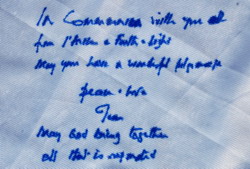 In Communion with you all
from l'Arche & Faith & Light
May you have a wonderful pilgrimage
peace & love
Jean
May God bring together
all that is separated